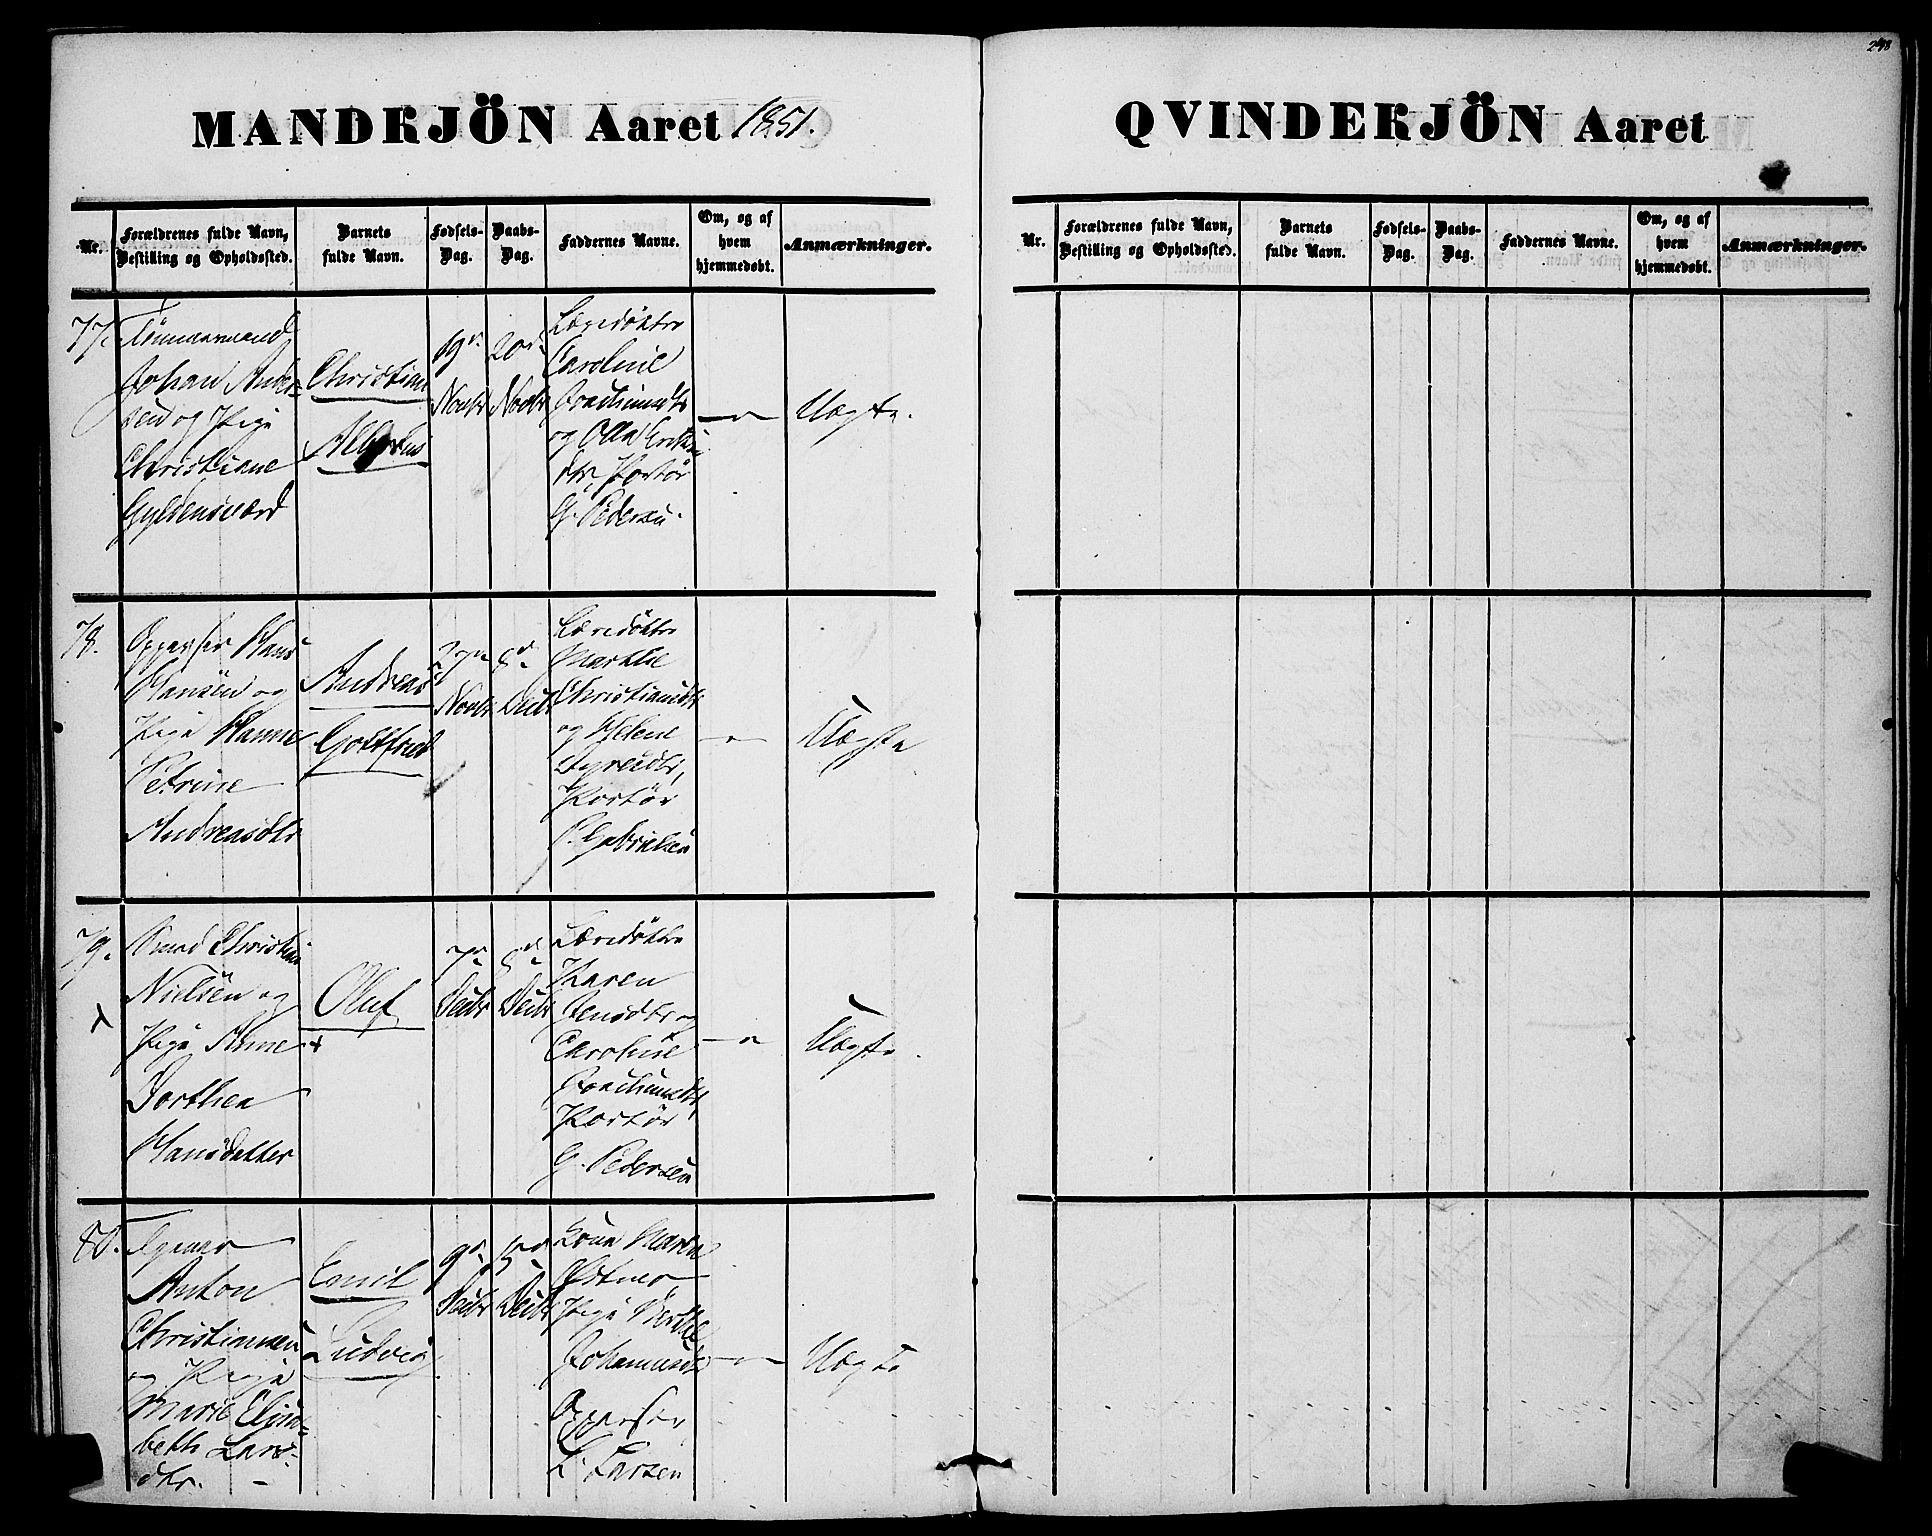 248
MANDKJÖN Aaret 1851.
Nr.
Forældrenes fulde Navn,
Bestilling og Opholdssted.
Barnets
fulde Navn.
Fødsels-
Dag.
Daabs-
Dag.
Faddernes Navne.
Om, og af
hvem
hjemmedøbt.
Anmærkninger.
77.
Tømmermand
Johan Ander-
sen og Pige
Christiane
Gyldensværd
Christian
Albertus
19de
Novbr
20de
Novbr
Caroline
Joachimsdtr
og Olla Eriks-
dtr, Portør
G. Pedersen.
Uægte.
78.
Oppasser Hans
Hansen og
Pige Hanne
Petrine
Andreasdtr
Andreas
Gottfried
27de
Novbr
8de
Decbr
Marthe
Christiansdtr
og Helene
Portør
P. Gabrielsen
Uægte
79.
Knud Christian
Nielsen og
Pige Anne
Dorthea
Hansdatter
Oluf
7de
Decbr
8de
Decbr
Karen
Jensdtr og
Caroline
Joachimsdtr,
Portør
G. Pedersen
Uægte.
80.
Anton
Christiansen
og Pige
Marie Elisa-
beth Lars-
dtr.
Emil
Ludvig
9de
Decbr
15de
Decbr
Kone Maren
Pige Berthe
Johannesdtr
Oppasser
L. Larsen
Uægte
QVINDEKJÖN Aaret
Nr.
Forældrenes fulde Navn,
Bestilling og Opholdssted.
Barnets
fulde Navn.
Fødsels-
Dag.
Daabs-
Dag.
Faddernes Navne.
Om, og af
hvem
hjemmedøbt.
Anmærkninger.